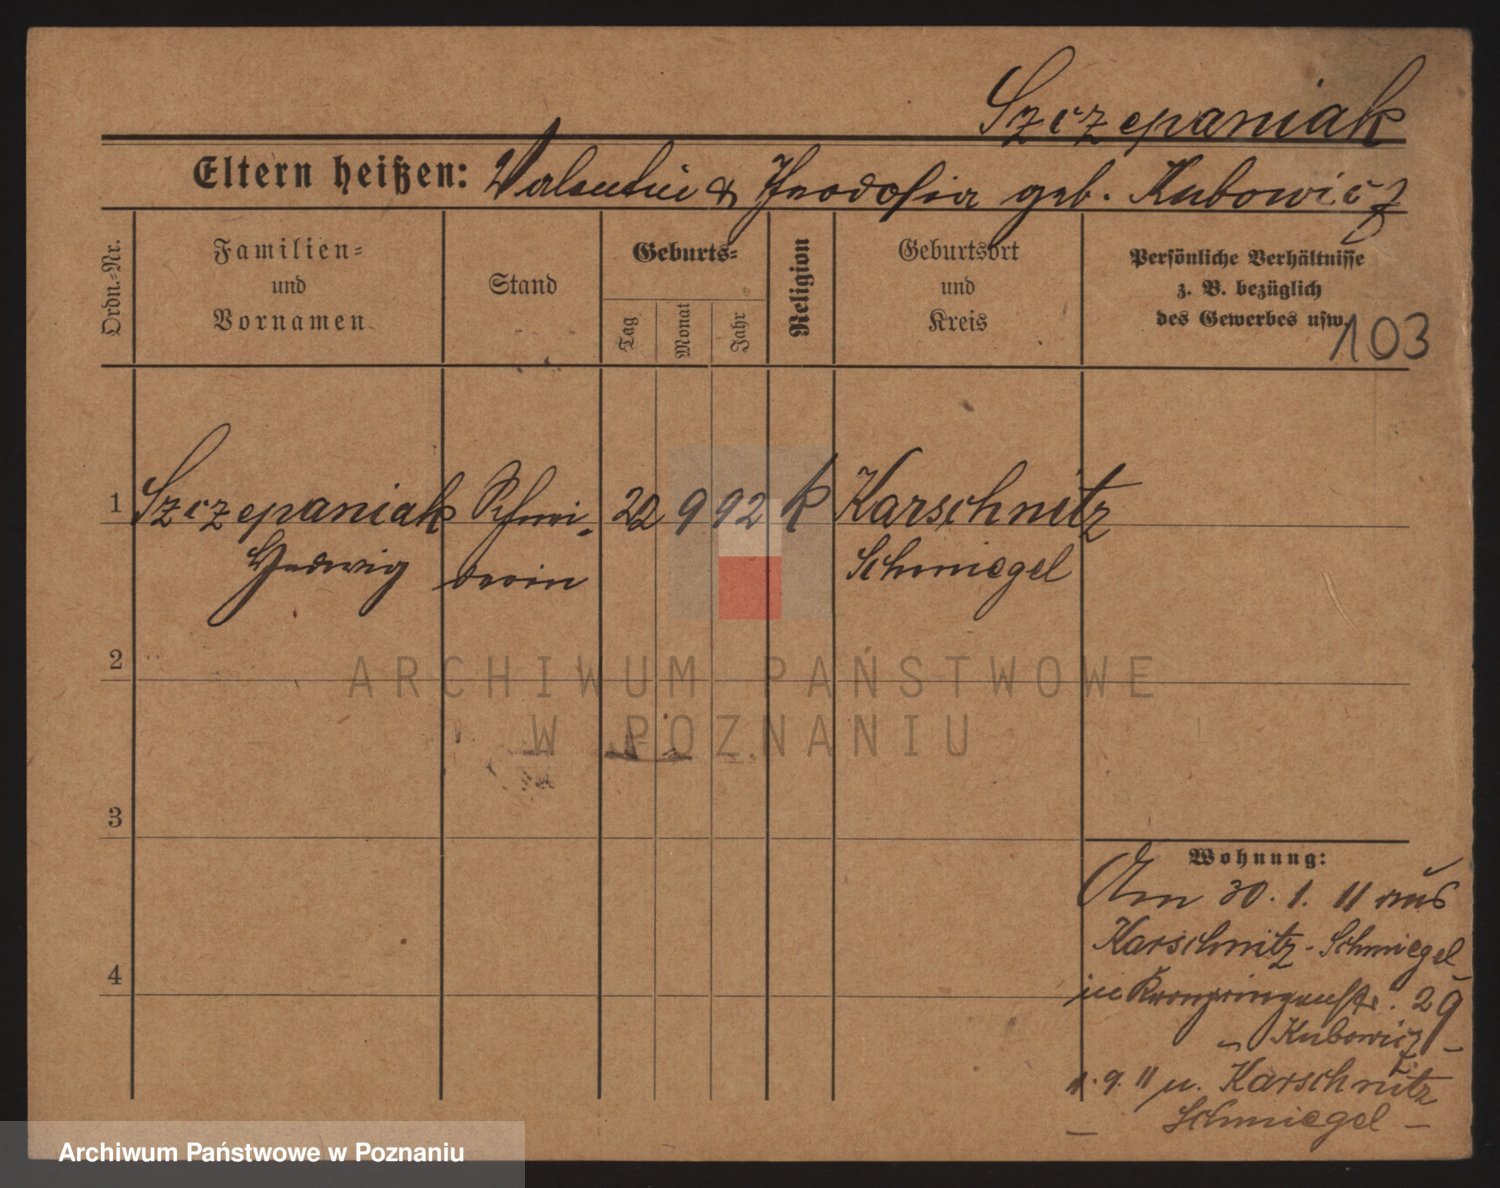 Szczepaniak
Eltern heißen: Valentin & Theodosia geb. Kubowicz
Ordn.-Nr.
Familien-
und
Vornamen
Stand
Geburts-
Tag
Monat
Jahr
Religion
Geburtsort
und
Kreis
Persönliche Verhältnisse
z. B. bezüglich
des Gewerbes usw.
103
1 Szczepaniak Schnei- 22 9 92 k Karschnitz
Hedwig derin Schmiegel
2
ARCHIWUM PAŃSTWOWE
W POZNANIU
3
Wohnung:
Am 30. 1. 11 aus
Karschnitz-Schmiegel
in Kronprinzenstr. 29
Kubowicz
1. 9. 11 n. Karschnitz
Schmiegel
4
Archiwum Państwowe w Poznaniu